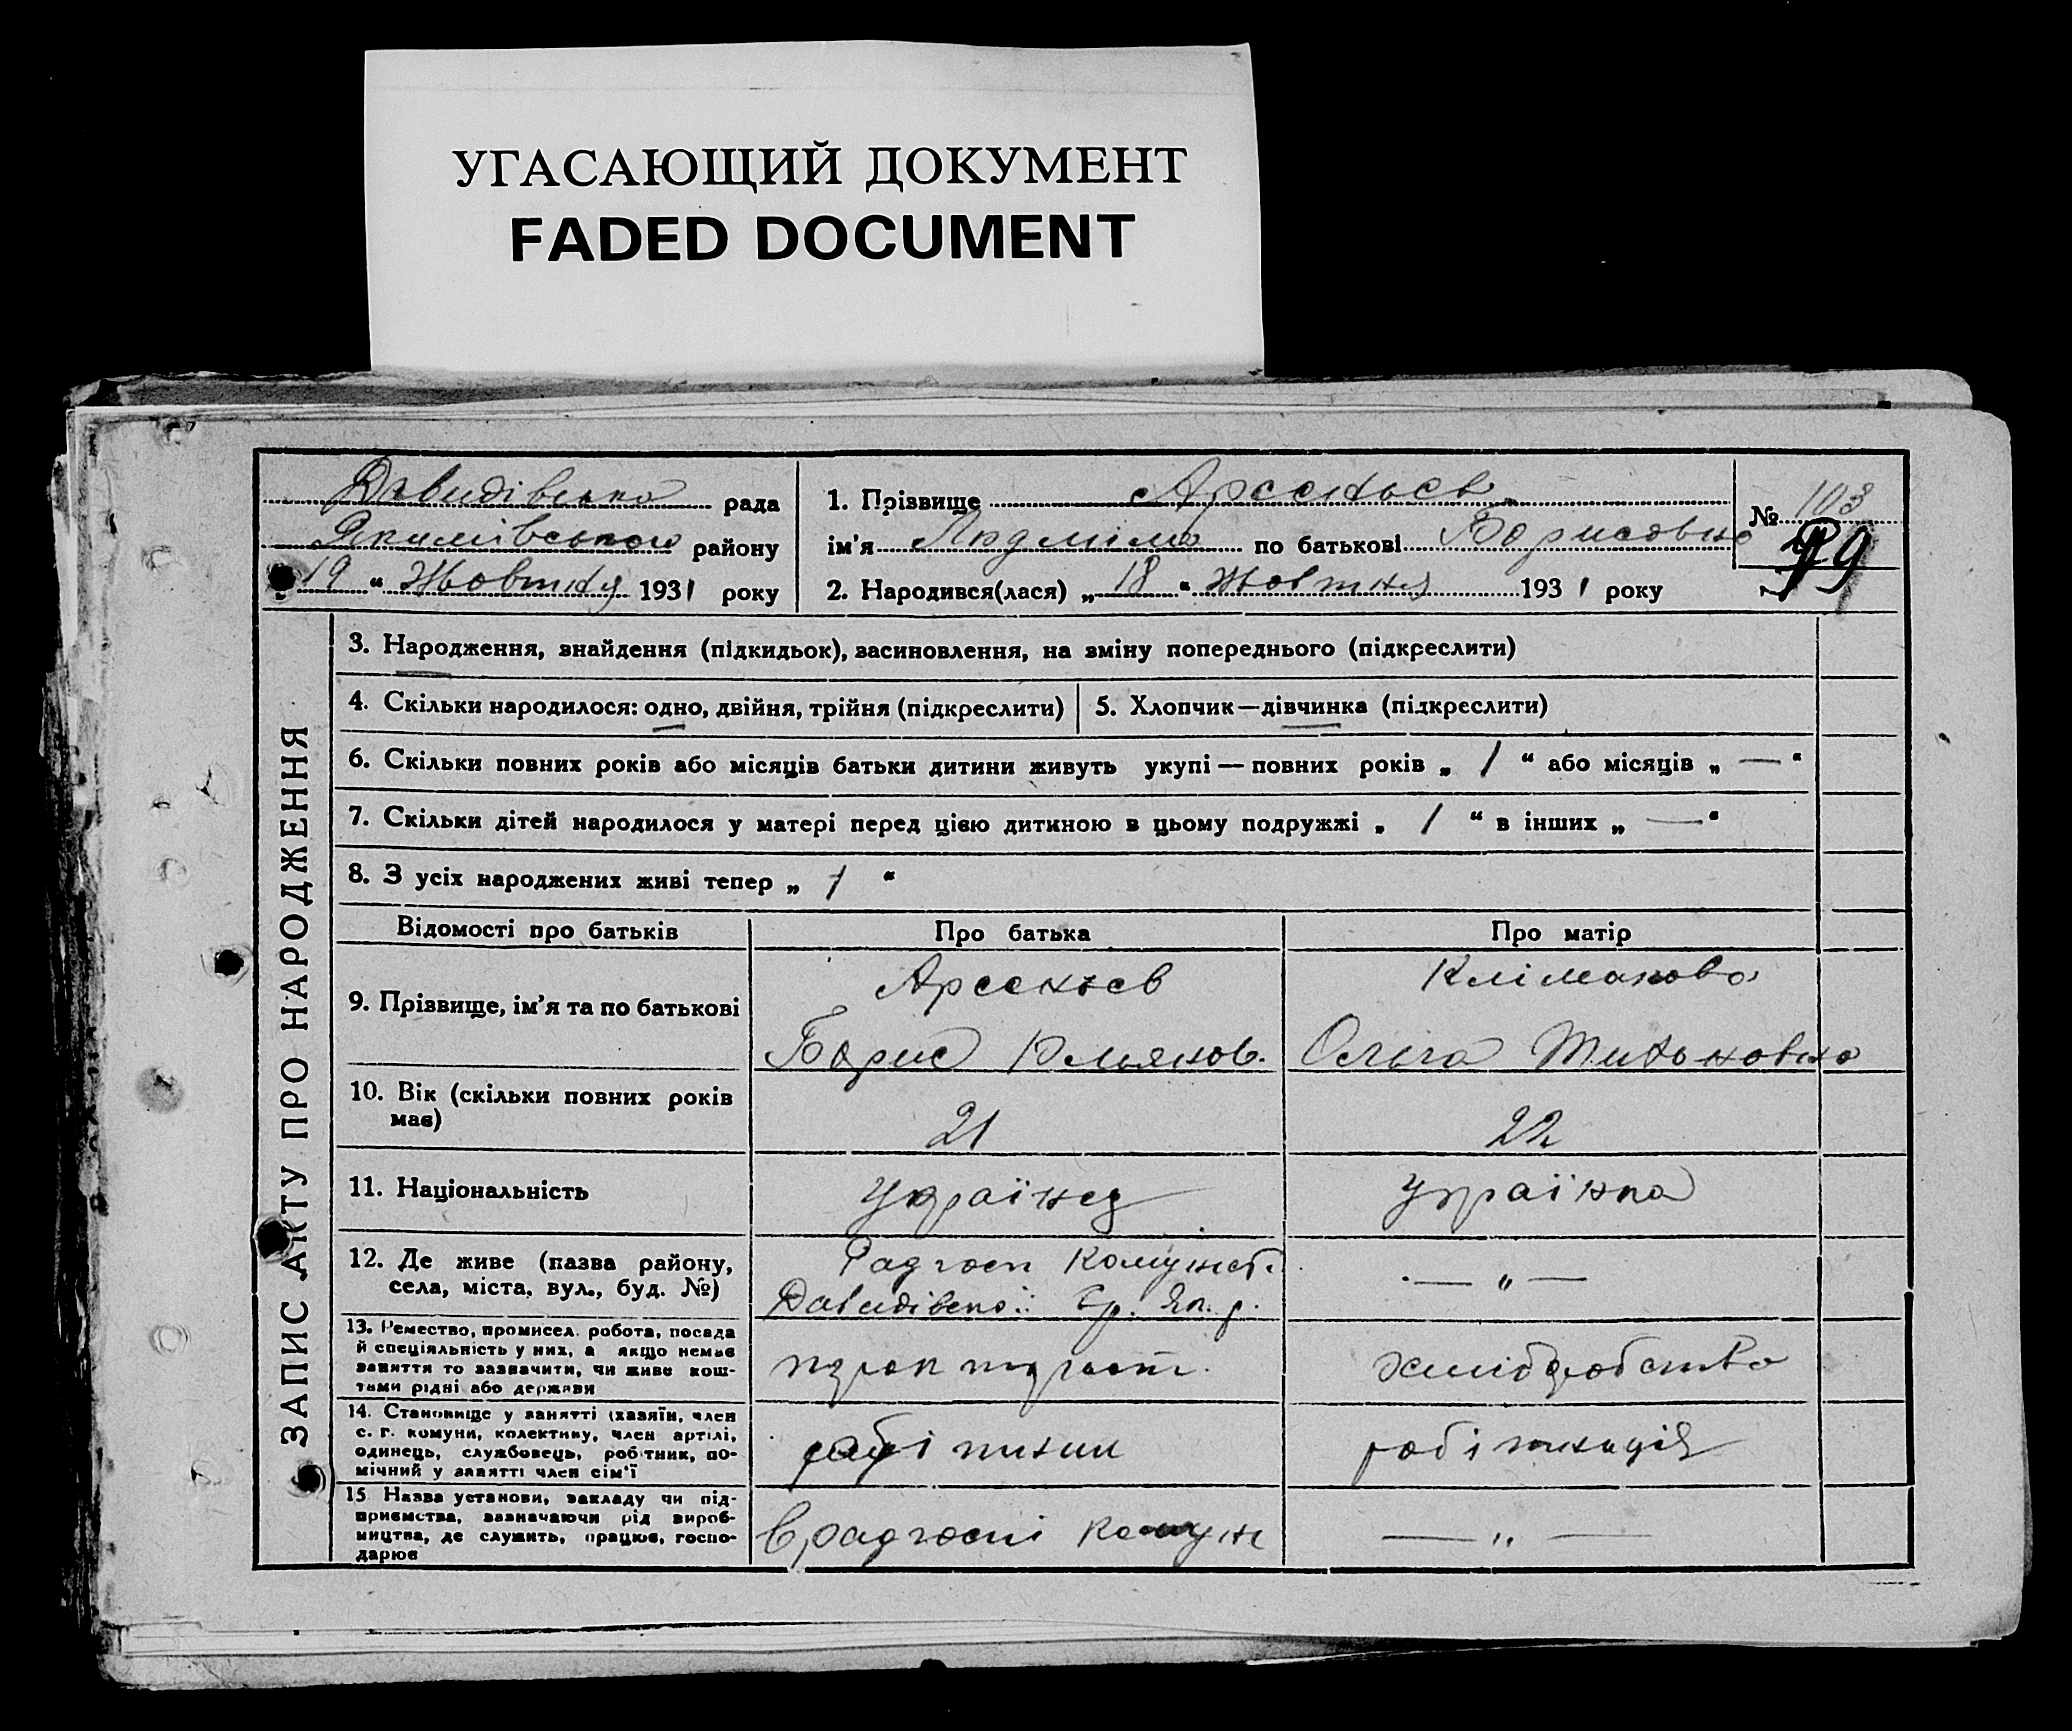 УГАСАЮЩИЙ ДОКУМЕНТ
FADED DOCUMENT
Давидівська рада
Якимівського району
19 “ Жовтня 1931 року
1. Прізвище Арсеньєв
ім'я Людміла по батькові Борисовна
2. Народився(лася) „ 18 “ жовтня 1931 року
№ 103
99
ЗАПИС АКТУ ПРО НАРОДЖЕННЯ
3. Народження, знайдення (підкидьок), засиновлення, на зміну попереднього (підкреслити)
4. Скільки народилося: одно, двійня, трійня (підкреслити)
5. Хлопчик—дівчинка (підкреслити)
6. Скільки повних років або місяців батьки дитини живуть укупі — повних років „ 1 “ або місяців „ — “
7. Скільки дітей народилося у матері перед цією дитиною в цьому подружжі „ 1 “ в інших „ — “
8. З усіх народжених живі тепер „ 1 “
Відомості про батьків
Про батька
Про матір
9. Прізвище, ім'я та по батькові
Арсеньєв
Борис
Кліманова
Ольга
10. Вік (скільки повних років має)
21
22
11. Національність
Українец
Українка
12. Де живе (назва району,
села, міста, вул., буд. №)
Радгосп Комуніст.
Давидівської Ср. Як. р.
— „ —
13. Ремество, промисел. робота, посада
й спеціяльність у них, а якщо немає
заняття то зазначити, чи живе кош-
тами рідні або держави
хліборобство
14. Становище у занятті (хазяїн, член
с. г. комуни, колективу, член артілі,
одинець, службовець, робітник, по-
мічний у занятті член сім'ї
робітник
робітниця
15 Назва установи, закладу чи під-
приємства, зазначаючи рід вироб-
ництва, де служить, працює, госпо-
дарює
в радгоспі комун
— „ —